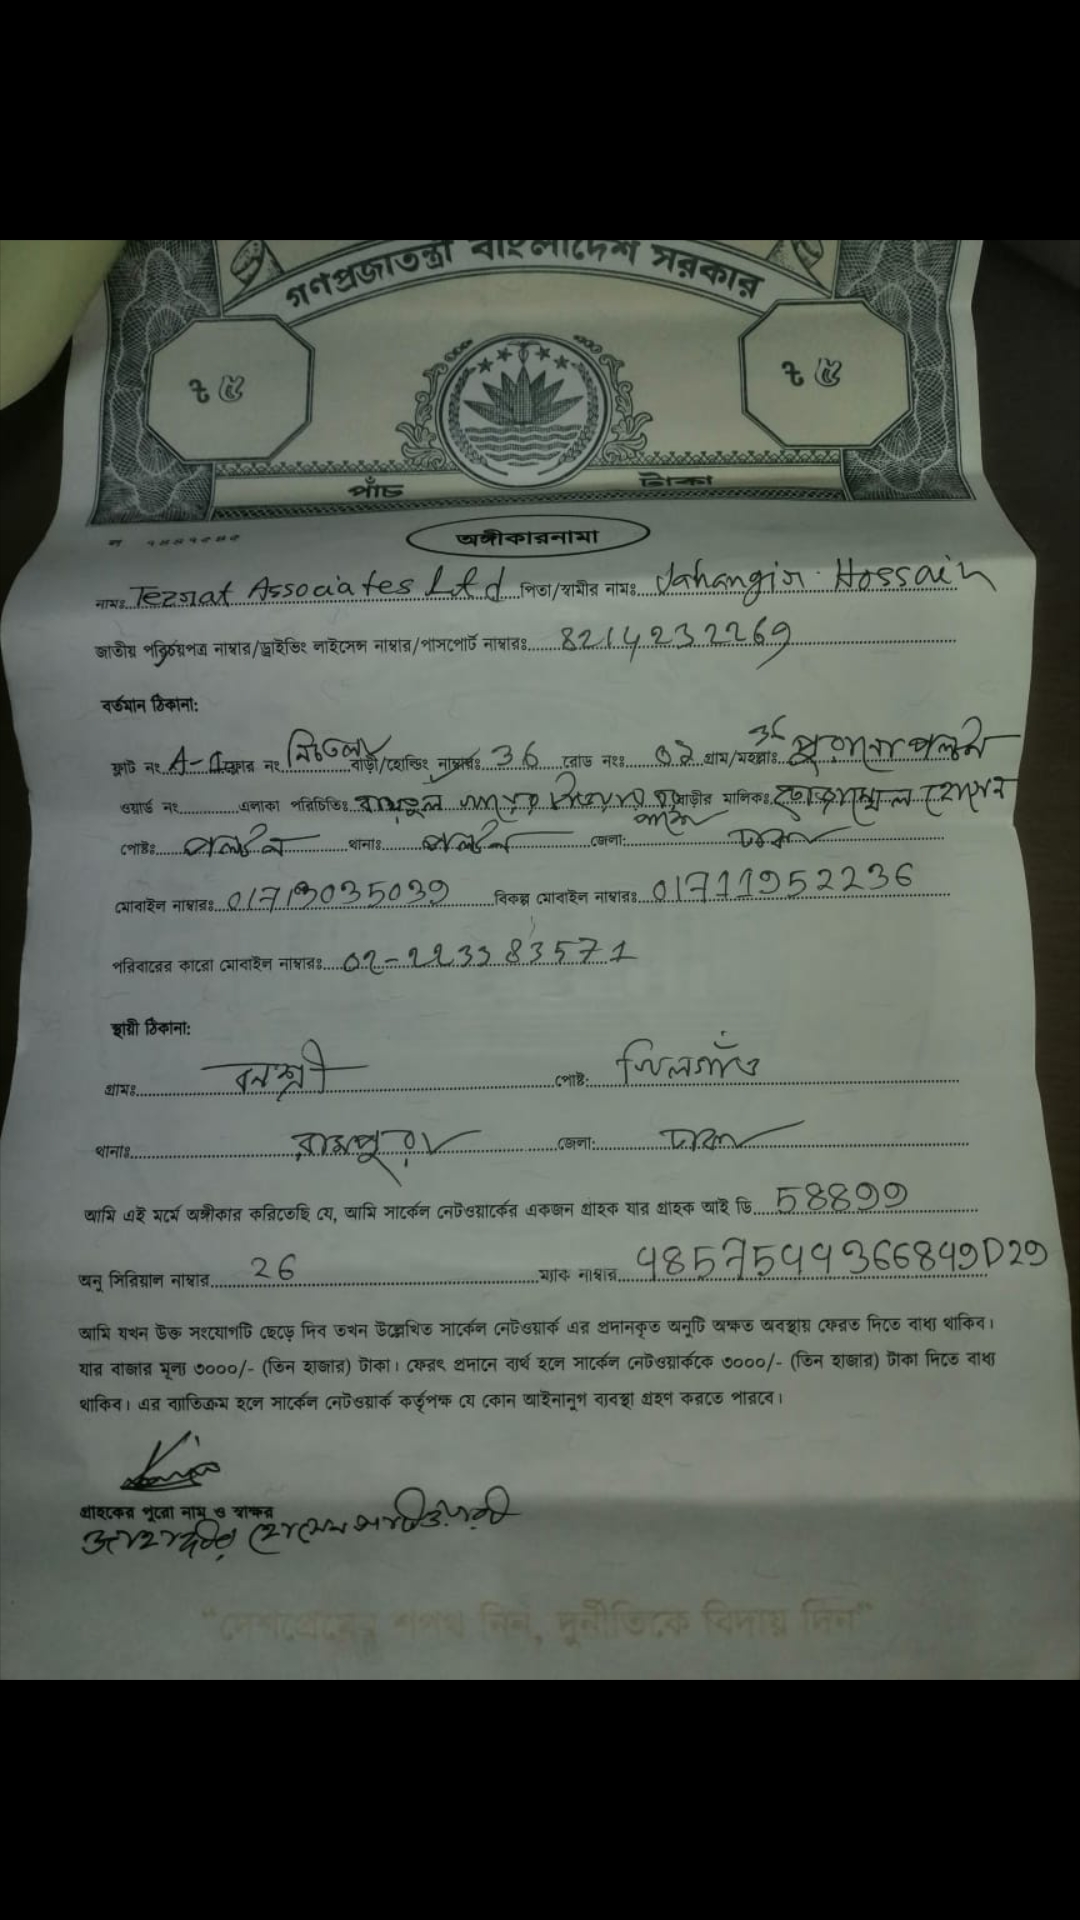 গণপ্রজাতন্ত্রী বাংলাদেশ সরকার
৳ ৫ ৳ ৫
পাঁচ টাকা
অঙ্গীকারনামা
নামঃ Teznat Associates Ltd পিতা/স্বামীর নামঃ Jahangir Hossain
জাতীয় পরিচয়পত্র নাম্বার/ড্রাইভিং লাইসেন্স নাম্বার/পাসপোর্ট নাম্বারঃ 8214232269
বর্তমান ঠিকানা:
ফ্লাট নং A- ফ্লোর নং নিচতলা বাড়ী/হোল্ডিং নাম্বারঃ 36 রোড নংঃ গ্রাম/মহল্লাঃ 36 পুরানো পল্টন
ওয়ার্ড নং এলাকা পরিচিতিঃ পাশে বাড়ীর মালিকঃ হোসেন
পোষ্টঃ পল্টন থানাঃ পল্টন জেলা: ঢাকা
মোবাইল নাম্বারঃ 01713035039 বিকল্প মোবাইল নাম্বারঃ 01711952236
পরিবারের কারো মোবাইল নাম্বারঃ 02-223383571
স্থায়ী ঠিকানা:
গ্রামঃ বনশ্রী পোষ্ট: খিলগাঁও
থানাঃ রামপুরা জেলা: ঢাকা
আমি এই মর্মে অঙ্গীকার করিতেছি যে, আমি সার্কেল নেটওয়ার্কের একজন গ্রাহক যার গ্রাহক আই ডি 58899
অনু সিরিয়াল নাম্বার 26 ম্যাক নাম্বার 48575449366849D29
আমি যখন উক্ত সংযোগটি ছেড়ে দিব তখন উল্লেখিত সার্কেল নেটওয়ার্ক এর প্রদানকৃত অনুটি অক্ষত অবস্থায় ফেরত দিতে বাধ্য থাকিব।
যার বাজার মূল্য ৩০০০/- (তিন হাজার) টাকা। ফেরৎ প্রদানে ব্যর্থ হলে সার্কেল নেটওয়ার্ককে ৩০০০/- (তিন হাজার) টাকা দিতে বাধ্য
থাকিব। এর ব্যাতিক্রম হলে সার্কেল নেটওয়ার্ক কর্তৃপক্ষ যে কোন আইনানুগ ব্যবস্থা গ্রহণ করতে পারবে।
গ্রাহকের পুরো নাম ও স্বাক্ষর
জাহাঙ্গীর হোসেন পাটওয়ারী
"দেশপ্রেমের শপথ নিন, দুর্নীতিকে বিদায় দিন"